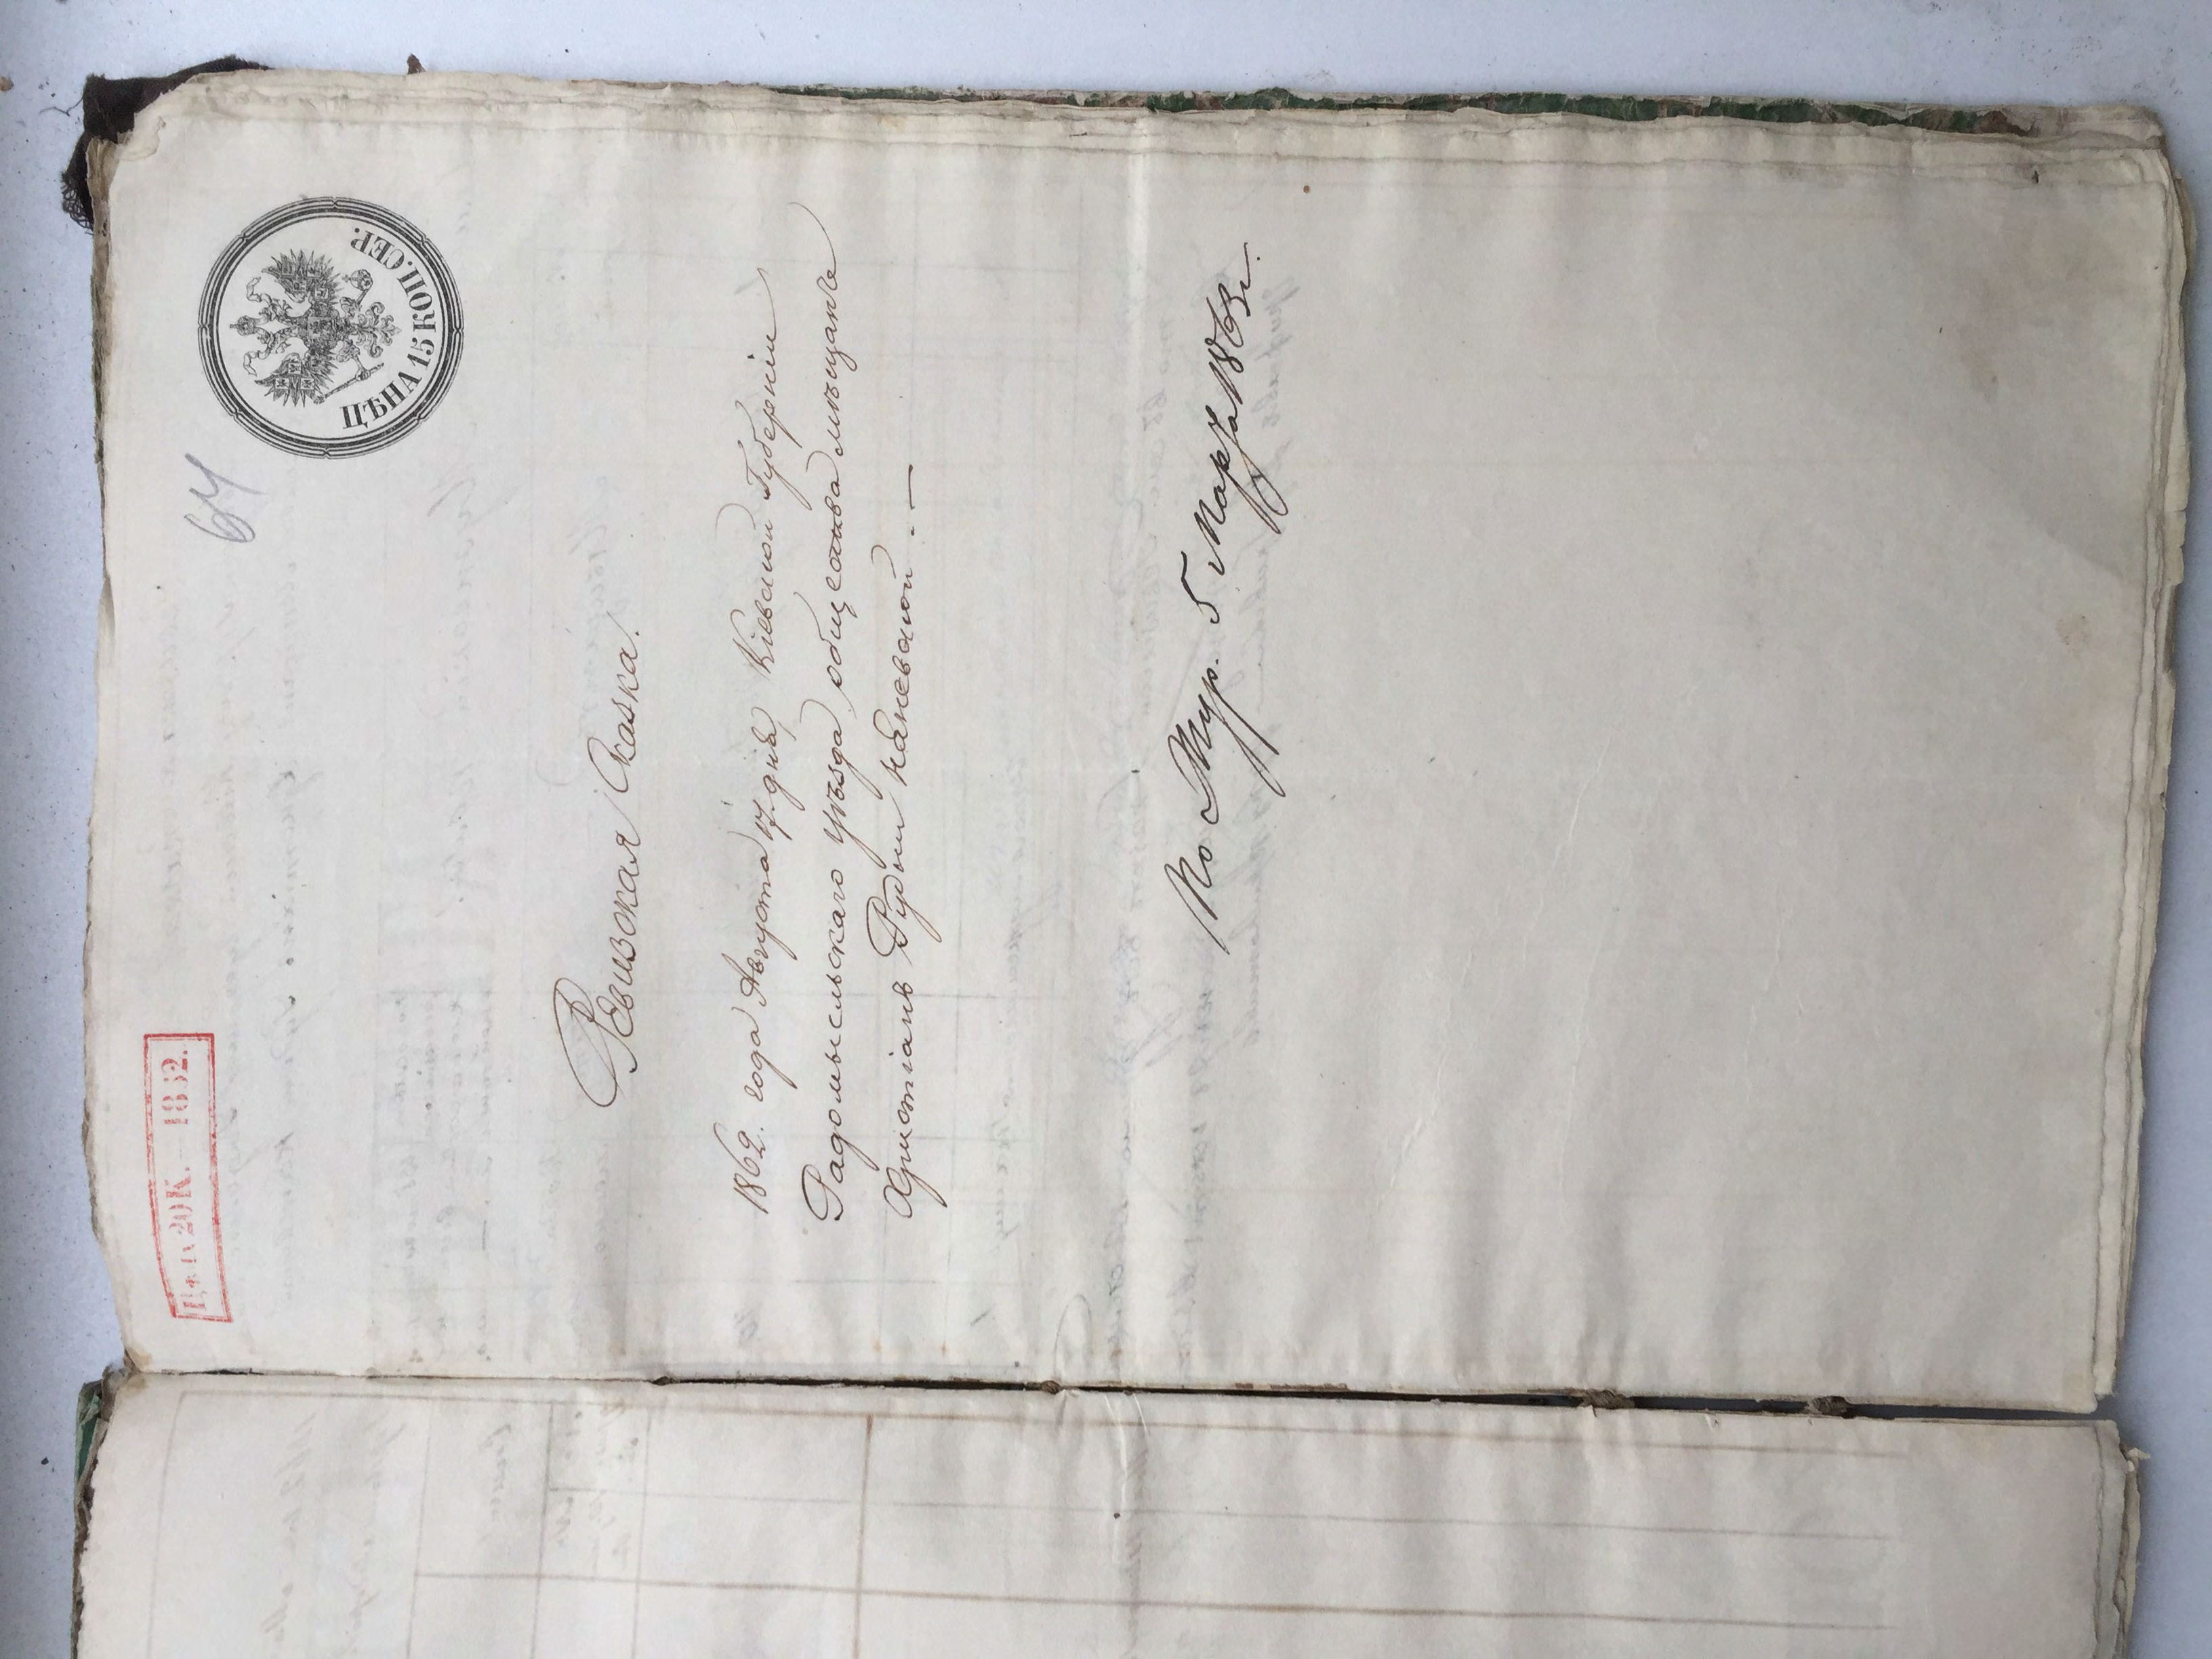 Цѣна 20 К. — 1862.
64
ЦѢНА 15 КОП. СЕР.
Ревизская Сказка.
1862. года Августа 17. дня, Кіевской Губерніи
Радомысльского уѣзда, общества мѣщанъ
Христіанъ Рудни каневской. —
По Жур. 5 Марта 1863 г.